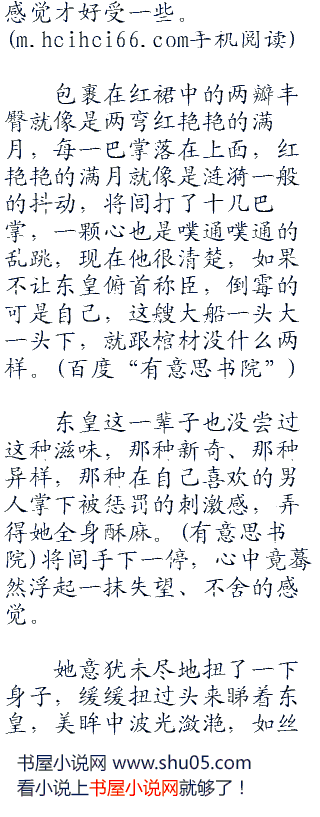 感觉才好受一些。
(m.hcihci66.com手机阅读)
包裹在红裙中的两瓣丰
臀就像是两弯红艳艳的满
月，每一巴掌落在上面，红
艳艳的满月就像是涟漪一般
的抖动，将闾打了十几巴
掌，一颗心也是噗通噗通的
乱跳，现在他很清楚，如果
不让东皇俯首称臣，倒霉的
可是自己，这艘大船一头大
一头下，就跟棺材没什么两
样。(百度“有意思书院”)
东皇这一辈子也没尝过
这种滋味，那种新奇、那种
异样，那种在自己喜欢的男
人掌下被惩罚的刺激感，弄
得她全身酥麻。(有意思书
院)将闾手下一停，心中竟蓦
然浮起一抹失望、不舍的感
觉。
她意犹未尽地扭了一下
身子，缓缓扭过头来睇着东
皇，美眸中波光潋滟，如丝
书屋小说网 www.shu05.com
看小说上书屋小说网就够了！